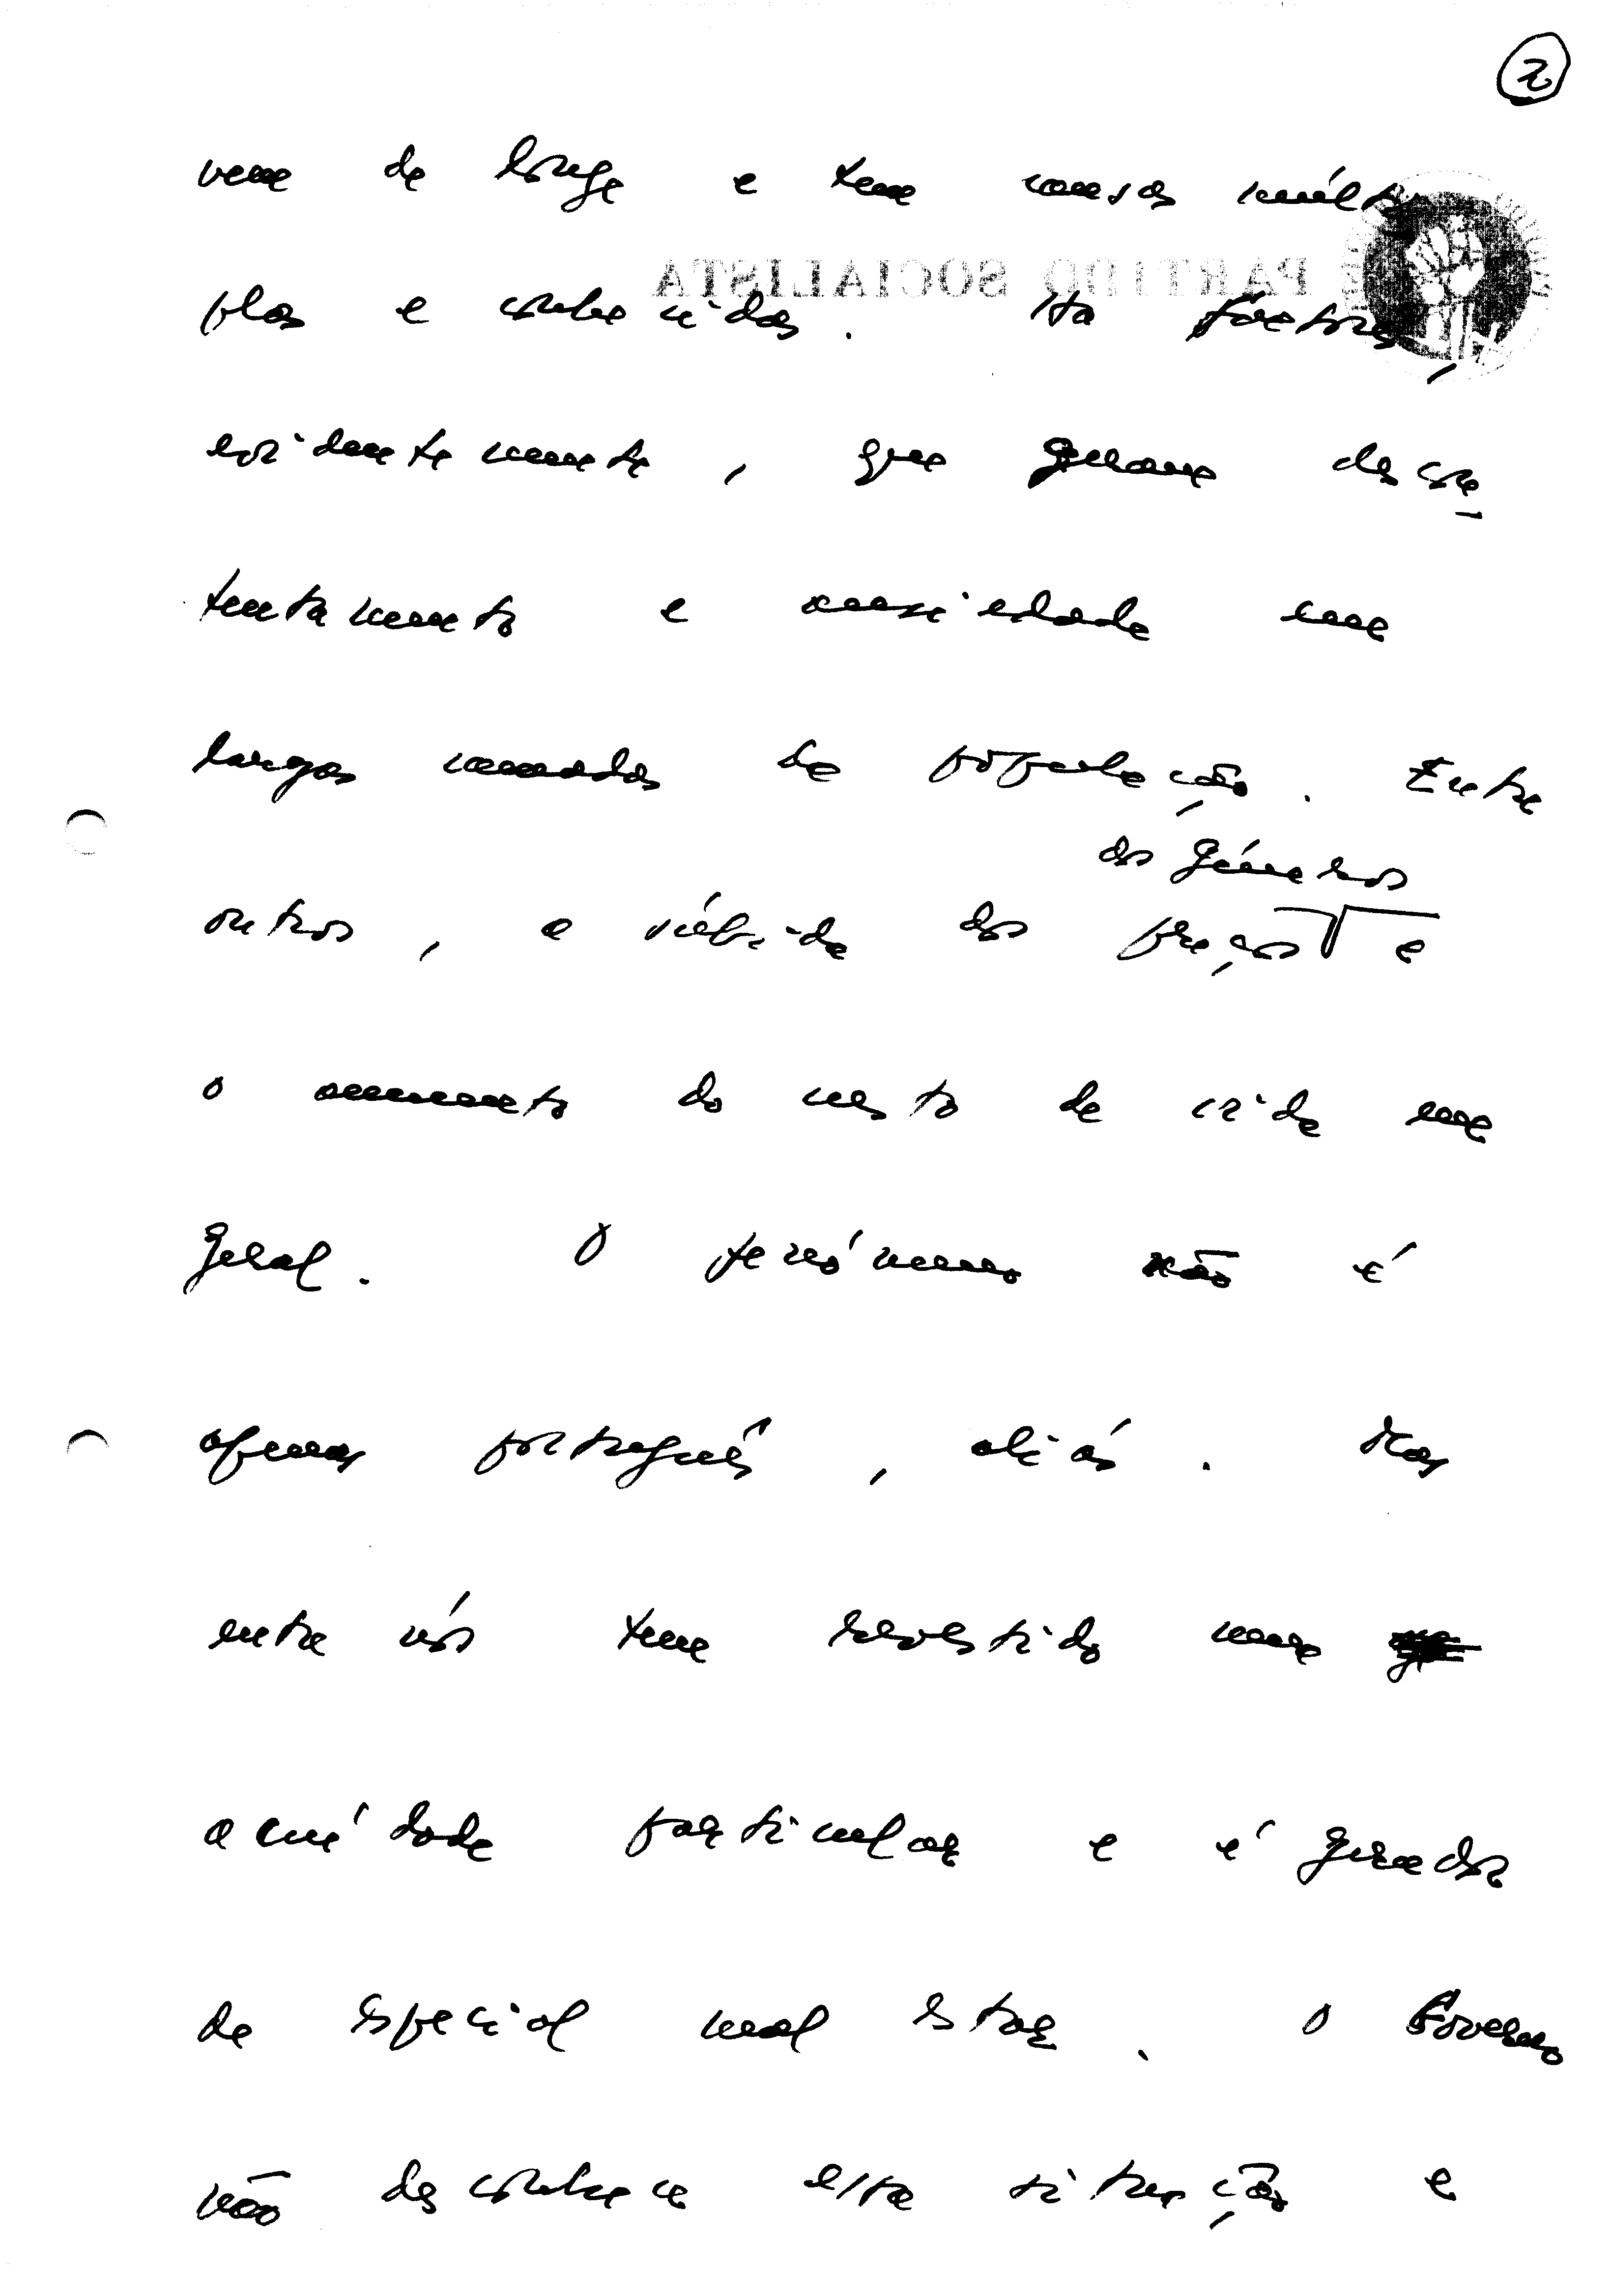 2
vem de longe e tem causas múlti
PARTIDO SOCIALISTA
plas e conhecidas. Há factores,
evidentemente, que geram descon-
tentamento e ansiedade em
largas camadas da população. Entre
dos géneros
outros, a súbida dos preços e
o aumento do custo de vida em
geral. O fenómeno não é
apenas português, aliás. Mas
entre nós tem revestido uma
acuidade particular e é gerador
de especial mal estar. O Governo
não desconhece esta situação e